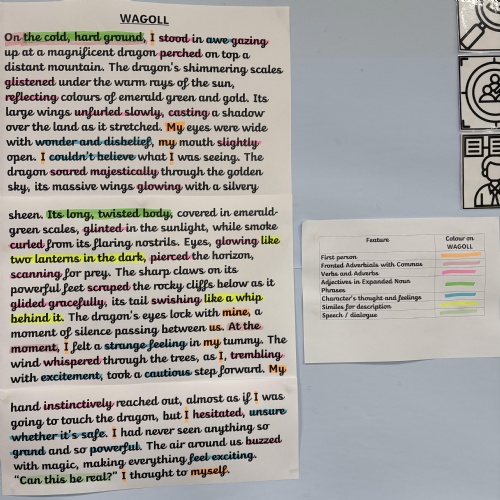 WAGOLL
On the cold, hard ground, I stood in awe gazing
up at a magnificent dragon perched on top a
distant mountain. The dragon's shimmering scales
glistened under the warm rays of the sun,
reflecting colours of emerald green and gold. Its
large wings unfurled slowly, casting a shadow
over the land as it stretched. My eyes were wide
with wonder and disbelief, my mouth slightly
open. I couldn't believe what I was seeing. The
dragon soared majestically through the golden
sky, its massive wings glowing with a silvery
sheen. Its long, twisted body, covered in emerald-
green scales, glinted in the sunlight, while smoke
curled from its flaring nostrils. Eyes, glowing like
two lanterns in the dark, pierced the horizon,
scanning for prey. The sharp claws on its
powerful feet scraped the rocky cliffs below as it
glided gracefully, its tail swishing like a whip
behind it. The dragon's eyes lock with mine, a
moment of silence passing between us. At the
moment, I felt a strange feeling in my tummy. The
wind whispered through the trees, as I, trembling
with excitement, took a cautious step forward. My
hand instinctively reached out, almost as if I was
going to touch the dragon, but I hesitated, unsure
whether it's safe. I had never seen anything so
grand and so powerful. The air around us buzzed
with magic, making everything feel exciting.
"Can this be real?" I thought to myself.
Feature Colour on WAGOLL
First person
Fronted Adverbials with Commas
Verbs and Adverbs
Adjectives in Expanded Noun
Phrases
Character's thought and feelings
Similes for description
Speech / dialogue